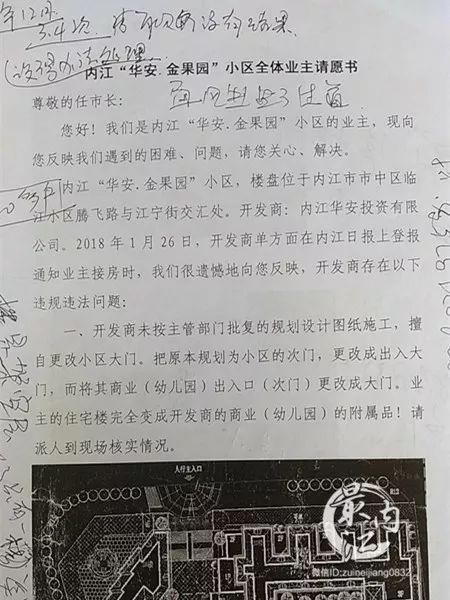 年12月
3.4次
(没得办法处理)
内江“华安.金果园”小区全体业主请愿书
尊敬的任市长：
您好！我们是内江“华安.金果园”小区的业主，现向
您反映我们遇到的困难、问题，请您关心、解决。
内江“华安.金果园”小区，楼盘位于内江市市中区临
江水区腾飞路与江宁街交汇处。开发商：内江华安投资有限
公司。2018年1月26日，开发商单方面在内江日报上登报
通知业主接房时，我们很遗憾地向您反映，开发商存在以下
违规违法问题：
一、开发商未按主管部门批复的规划设计图纸施工，擅
自更改小区大门。把原本规划为小区的次门，更改成出入大
门，而将其商业（幼儿园）出入口（次门）更改成大门。业
主的住宅楼完全变成开发商的商业（幼儿园）的附属品！请
派人到现场核实情况。
人行主入口
最内江
微信ID:zuineijiang0832